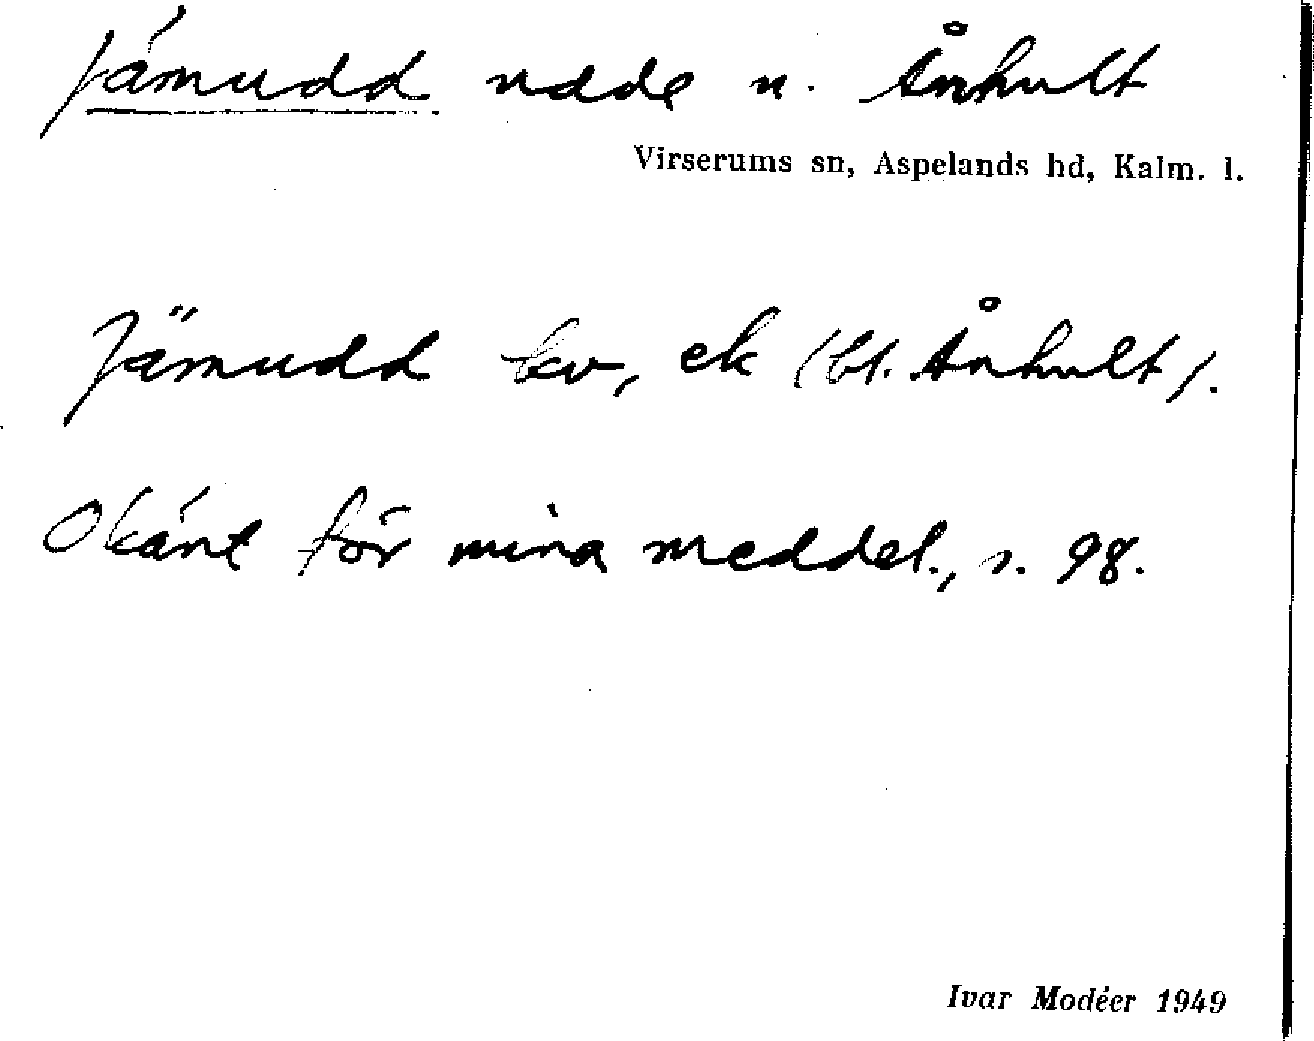 Jämudd udde n. Ånhult
Virserums sn, Aspelands hd, Kalm. l.
Jämudd kv, ek (bl. Ånhult).
Okänt för mina meddel., s. 98.
Ivar Modéer 1949